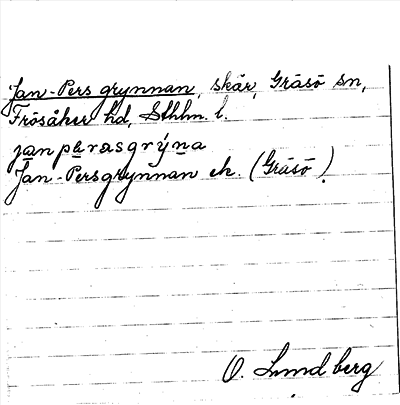 Jan-Pers grynnan, skär, Gräsö sn,
Frösåker hd, Sthlm. l.
janpærasgrýna
Jan-Persgrynnan ek. (Gräsö).
O. Lundberg